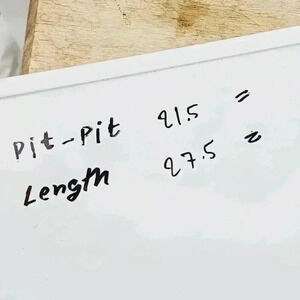 Pit-Pit 21.5 =
Length 27.5 =